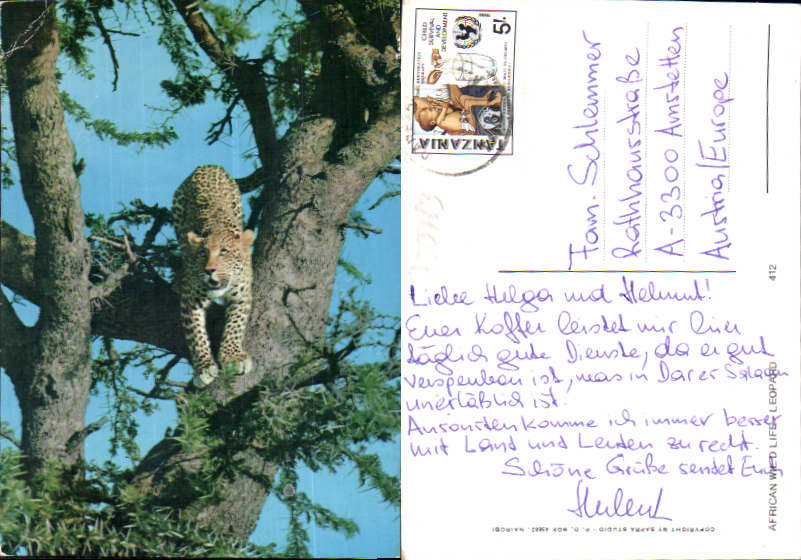 Liebe Helga und Helmut!
Euer Koffer leistet mir hier
täglich gute Dienste, da er gut
versperrbar ist, was in Dar es Salaam
unerläßlich ist.
Ansonsten komme ich immer besser
mit Land und Leuten zurecht.
Schöne Grüße sendet Euch
Fam. Schlemmer
Rathhausstraße
A-3300 Amstetten
Austria/Europe
TANZANIA
5/-
CHILD
SURVIVAL
AND
DEVELOPMENT
412
AFRICAN WILD LIFE, LEOPARD
COPYRIGHT BY SAPRA STUDIO - P. O. BOX NAIROBI